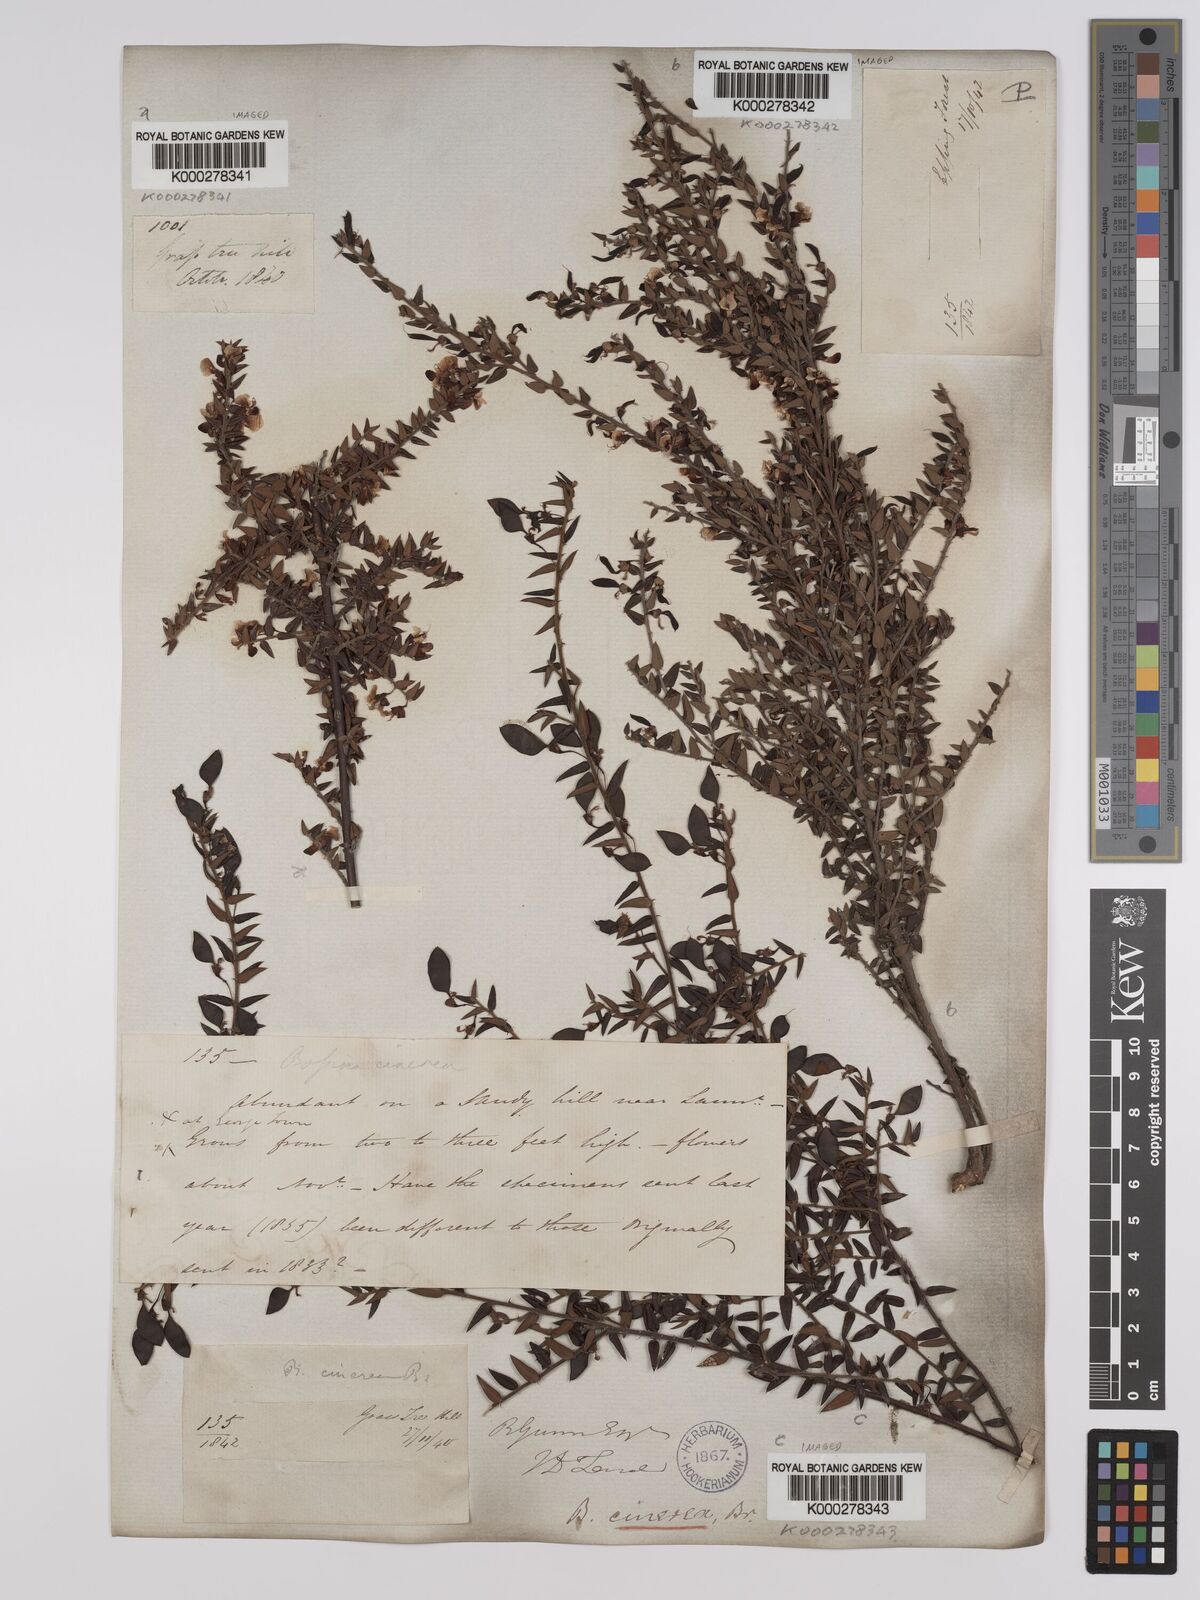 a
IMAGED
ROYAL BOTANIC GARDENS KEW
K000278341
K000278341
1001
Grass tree hill
Octr. 1840
b
ROYAL BOTANIC GARDENS KEW
IMAGED
K000278342
K000278342
P
Epping Forest
17/10/42
135
1842
a
b
135 — Bossiaea cinerea
Abundant on a Sandy hill near Launn. —
& at George town
Grows from two to three feet high. — flowers
about Novr. — Have the specimens sent last
year (1835) been different to those originally
sent in 1833? —
B. cinerea Br
135
1842
Grass Tree Hill
27/10/40
R Gunn Esqr
V D Land
HERBARIUM
1867.
HOOKERIANUM
c
c
IMAGED
ROYAL BOTANIC GARDENS KEW
K000278343
K000278343
B. cinerea, Br.
inches
centimetres
Density
Don Williams
M001033
Kew
Royal Botanic Gardens
copyright reserved
0 1 2 3 4 5 6 7 8 9 10
cm